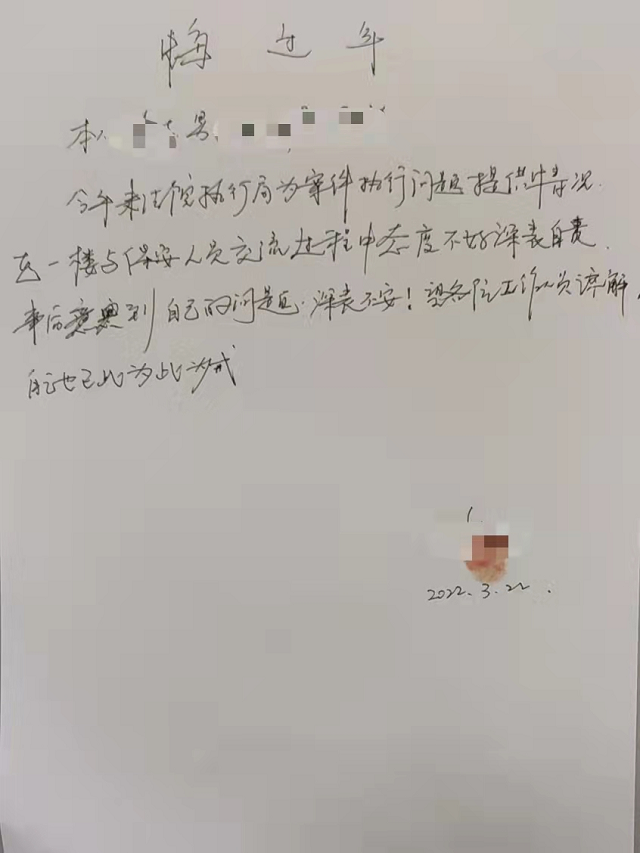 悔过书
本人 男
今年来法院执行局为案件执行问题提供情况.
在一楼与保安人员交流过程中态度不好深表自责.
事后意识到自己的问题.深表不安!望各位工作人员谅解,
自己也已此为戒
2022.3.22.